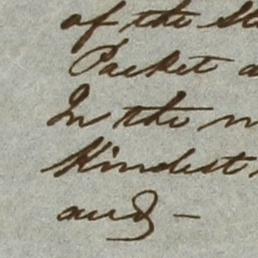 of the St
Packet a
In the m
Kindest
and —